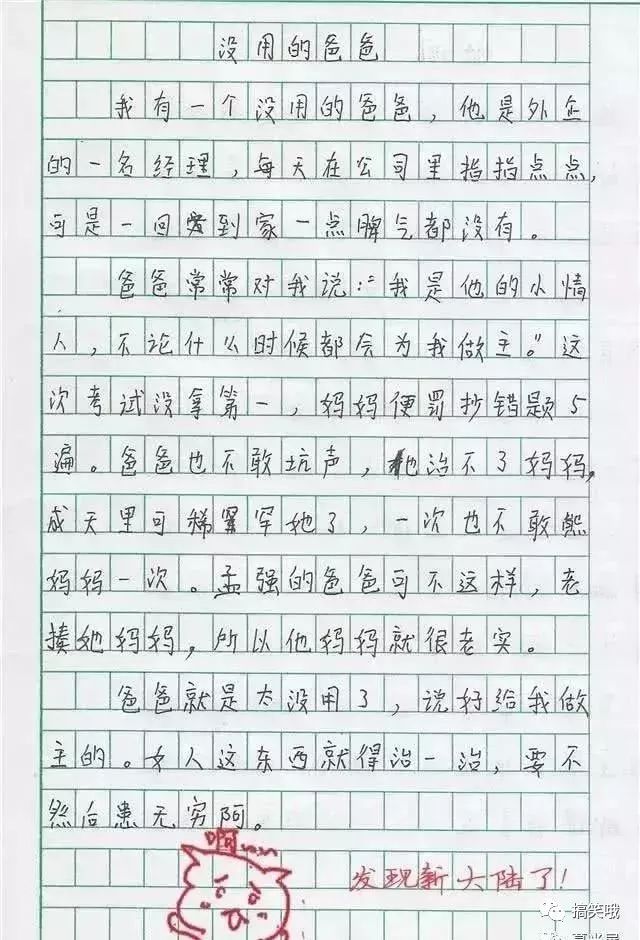 没用的爸爸
我有一个没用的爸爸，他是外企
的一名经理，每天在公司里指指点点，
可是一回到家一点脾气都没有。
爸爸常常对我说：“我是他的小情
人，不论什么时候都会为我做主。”这
次考试没拿第一，妈妈便罚抄错题5
遍。爸爸也不敢坑声，他治不了妈妈，
成天里可稀罕她了，一次也不敢熊
妈妈一次。孟强的爸爸可不这样，老
揍她妈妈，所以他妈妈就很老实。
爸爸就是太没用了，说好给我做
主的。女人这东西就得治一治，要不
然后患无穷阿。
啊
发现新大陆了！
搞笑哦